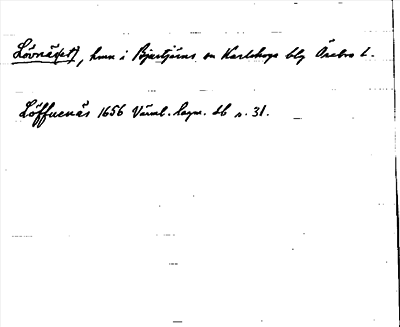 Lövnäs(et), hmn i Böjertjärns sn Karlskoga blg Örebro l.
Löffuenäs 1656 Värml. lagm. db s. 31.